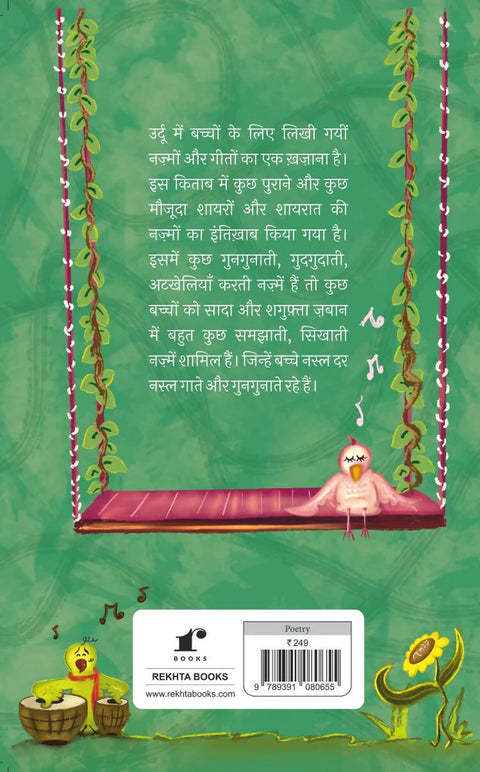 उर्दू में बच्चों के लिए लिखी गयीं
नज़्मों और गीतों का एक ख़ज़ाना है।
इस किताब में कुछ पुराने और कुछ
मौजूदा शायरों और शायरात की
नज़्मों का इंतिख़ाब किया गया है।
इसमें कुछ गुनगुनाती, गुदगुदाती,
अटखेलियाँ करती नज़्में हैं तो कुछ
बच्चों को सादा और शगुफ़्ता ज़बान
में बहुत कुछ समझाती, सिखाती
नज़्में शामिल हैं। जिन्हें बच्चे नस्ल दर
नस्ल गाते और गुनगुनाते रहे हैं।
r
BOOKS
REKHTA BOOKS
www.rekhtabooks.com
Poetry
₹ 249
9 789391 080655